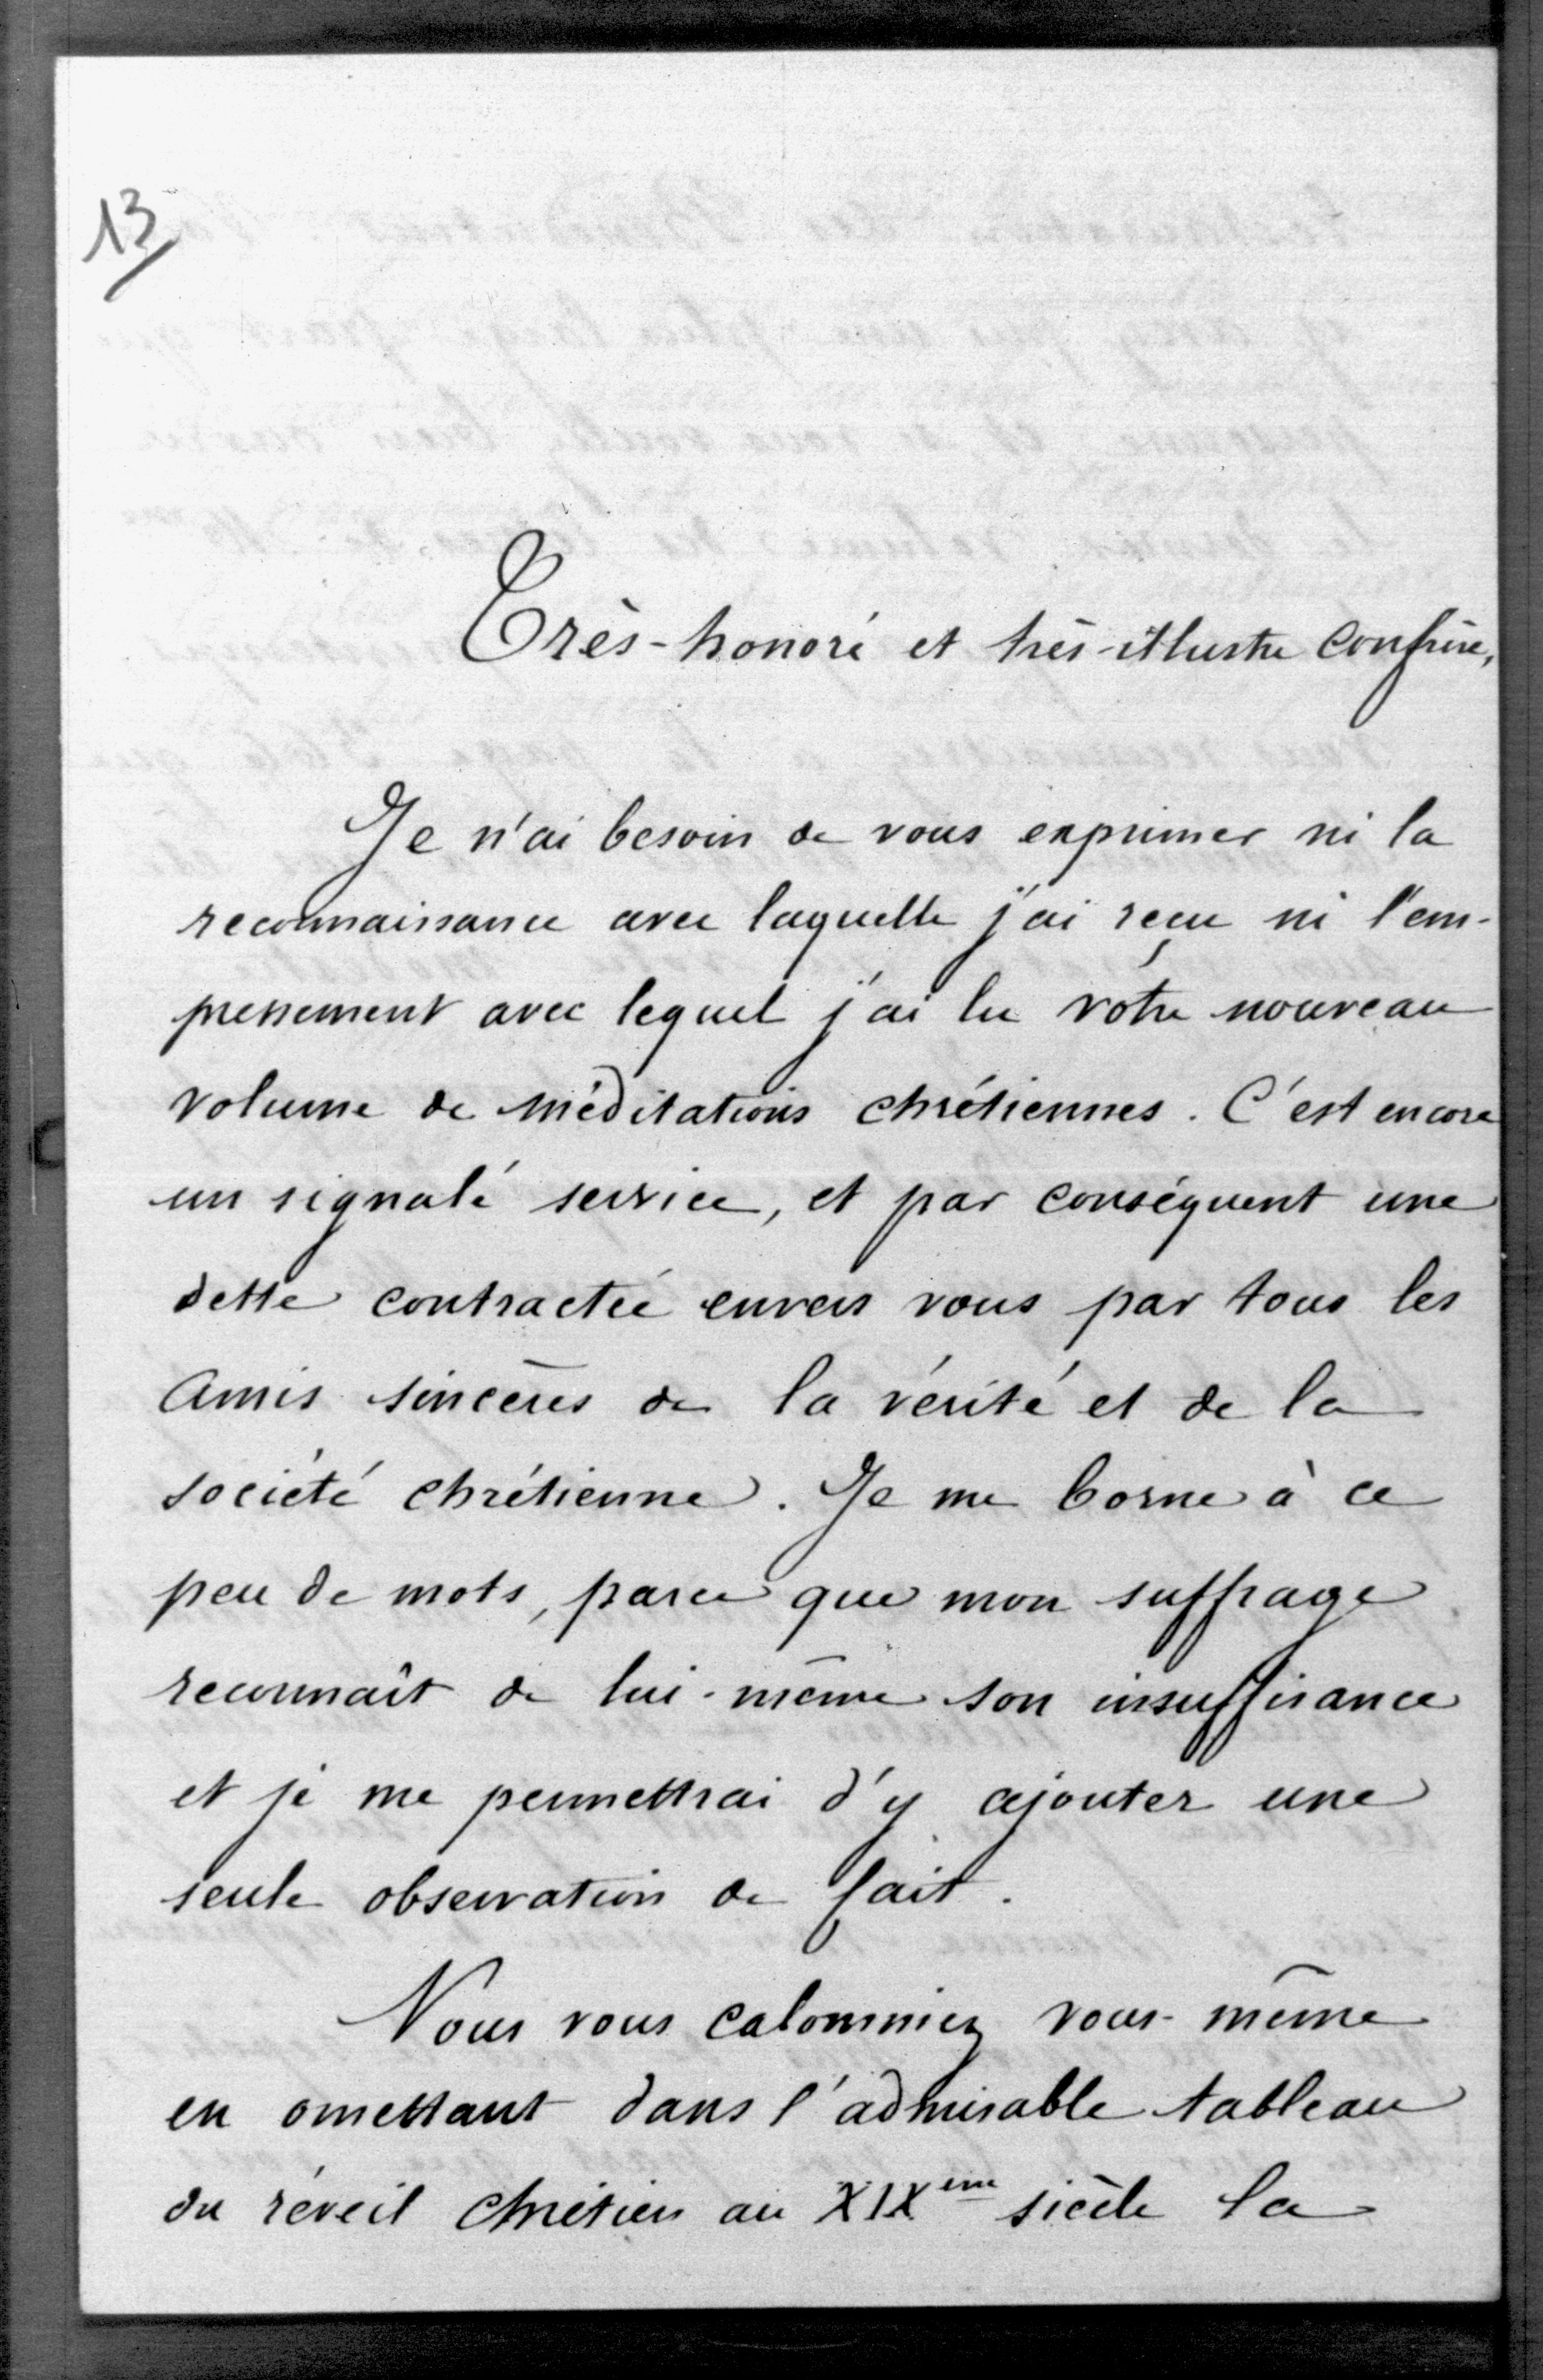 13
Très-honoré et très-illustre confrère,
Je n'ai besoin de vous exprimer ni la
reconnaissance avec laquelle j'ai reçu ni l'em-
pressement avec lequel j'ai lu votre nouveau
volume de méditations chrétiennes. C'est encore
un signalé service, et par conséquent une
dette contractée envers vous par tous les
amis sincères de la vérité et de la
société chrétienne. Je me borne à ce
peu de mots, parce que mon suffrage
reconnaît de lui-même son insuffisance
et je me permettrai d'y ajouter une
seule observation de fait.
Vous vous calomniez vous-même
en omettant dans l'admirable tableau
du réveil chrétien au XIXème siècle la